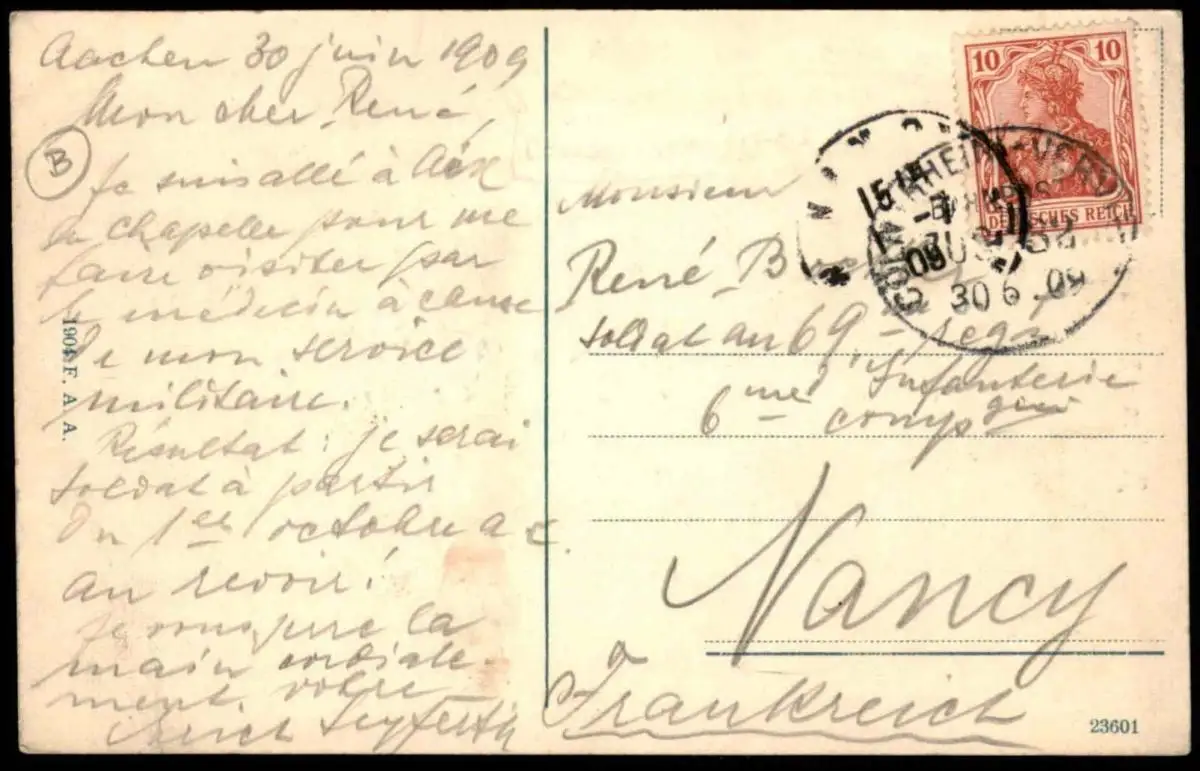 Aachen 30 juin 1909
Mon cher René,
B
Je suis allé à Aix
la chapelle pour me
faire visiter par
le médecin à cause
de mon service
militaire.
Résultat : je serai
soldat à partir
du 1er octobre a c.
au revoir!
Je vous serre la
main cordiale-
ment. votre
Erich Seyferth
1904 F. A. A.
10 10
DEUTSCHES REICH
30 6 09
Monsieur
René
soldat au 69e regt
d'Infanterie
6me compgnie
Nancy
Frankreich
23601